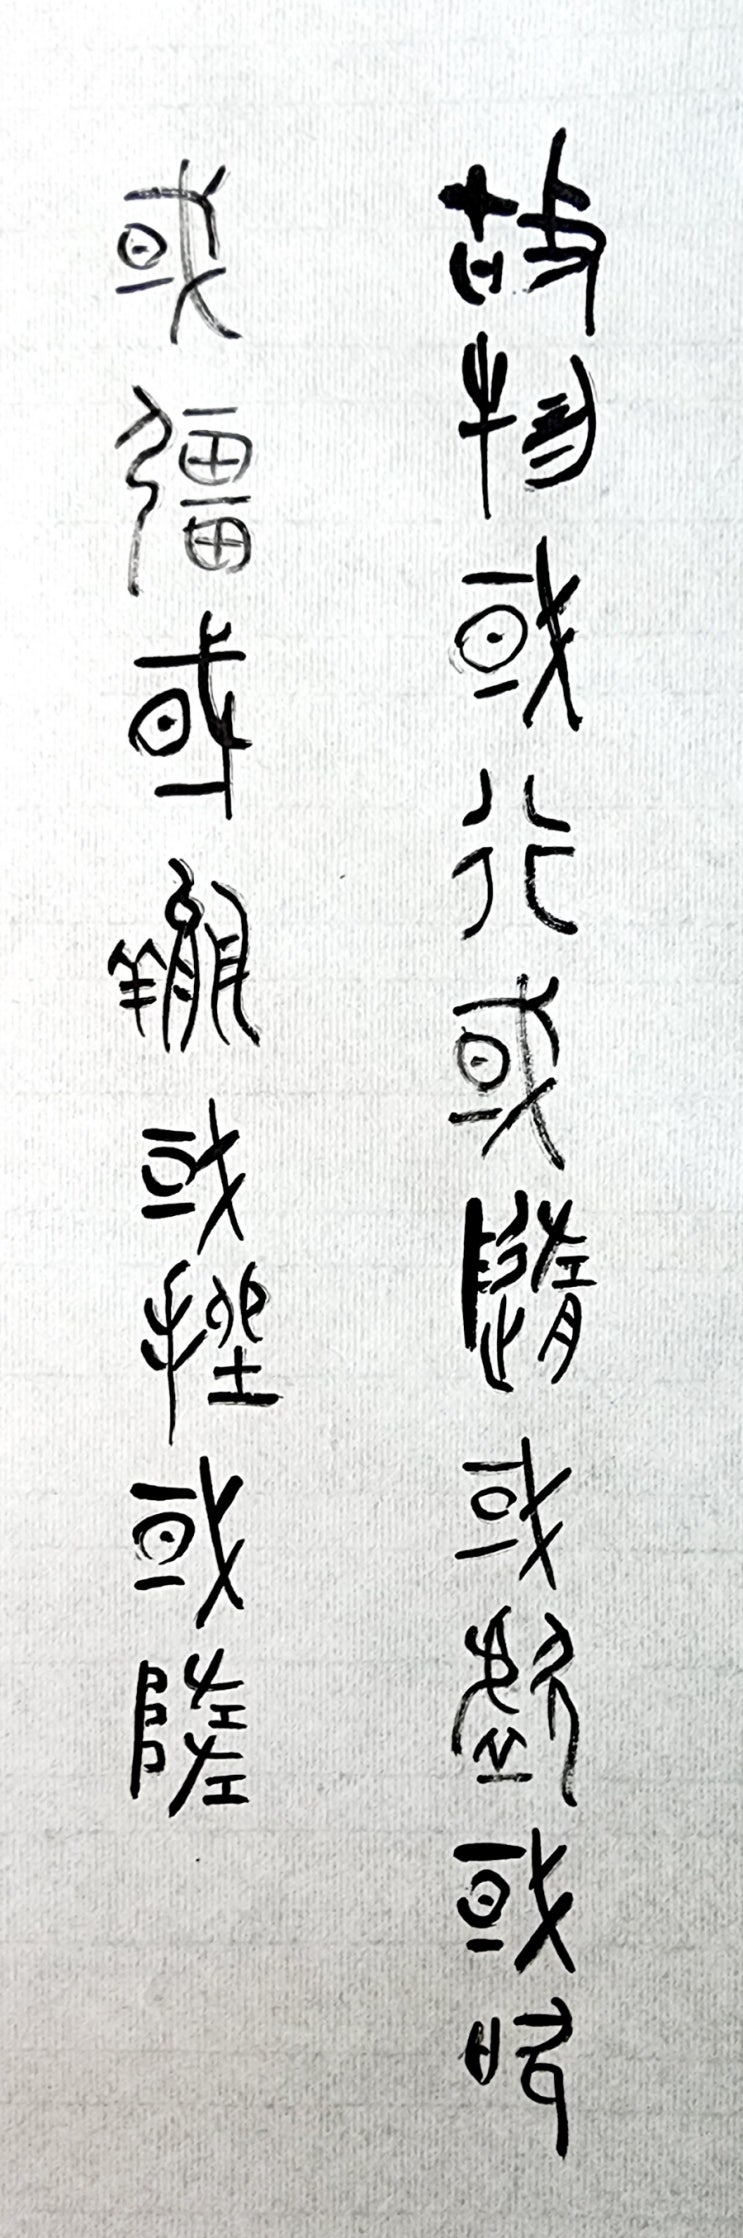 故物或行或隨或歔或吹
或彊或羸或挫或隓